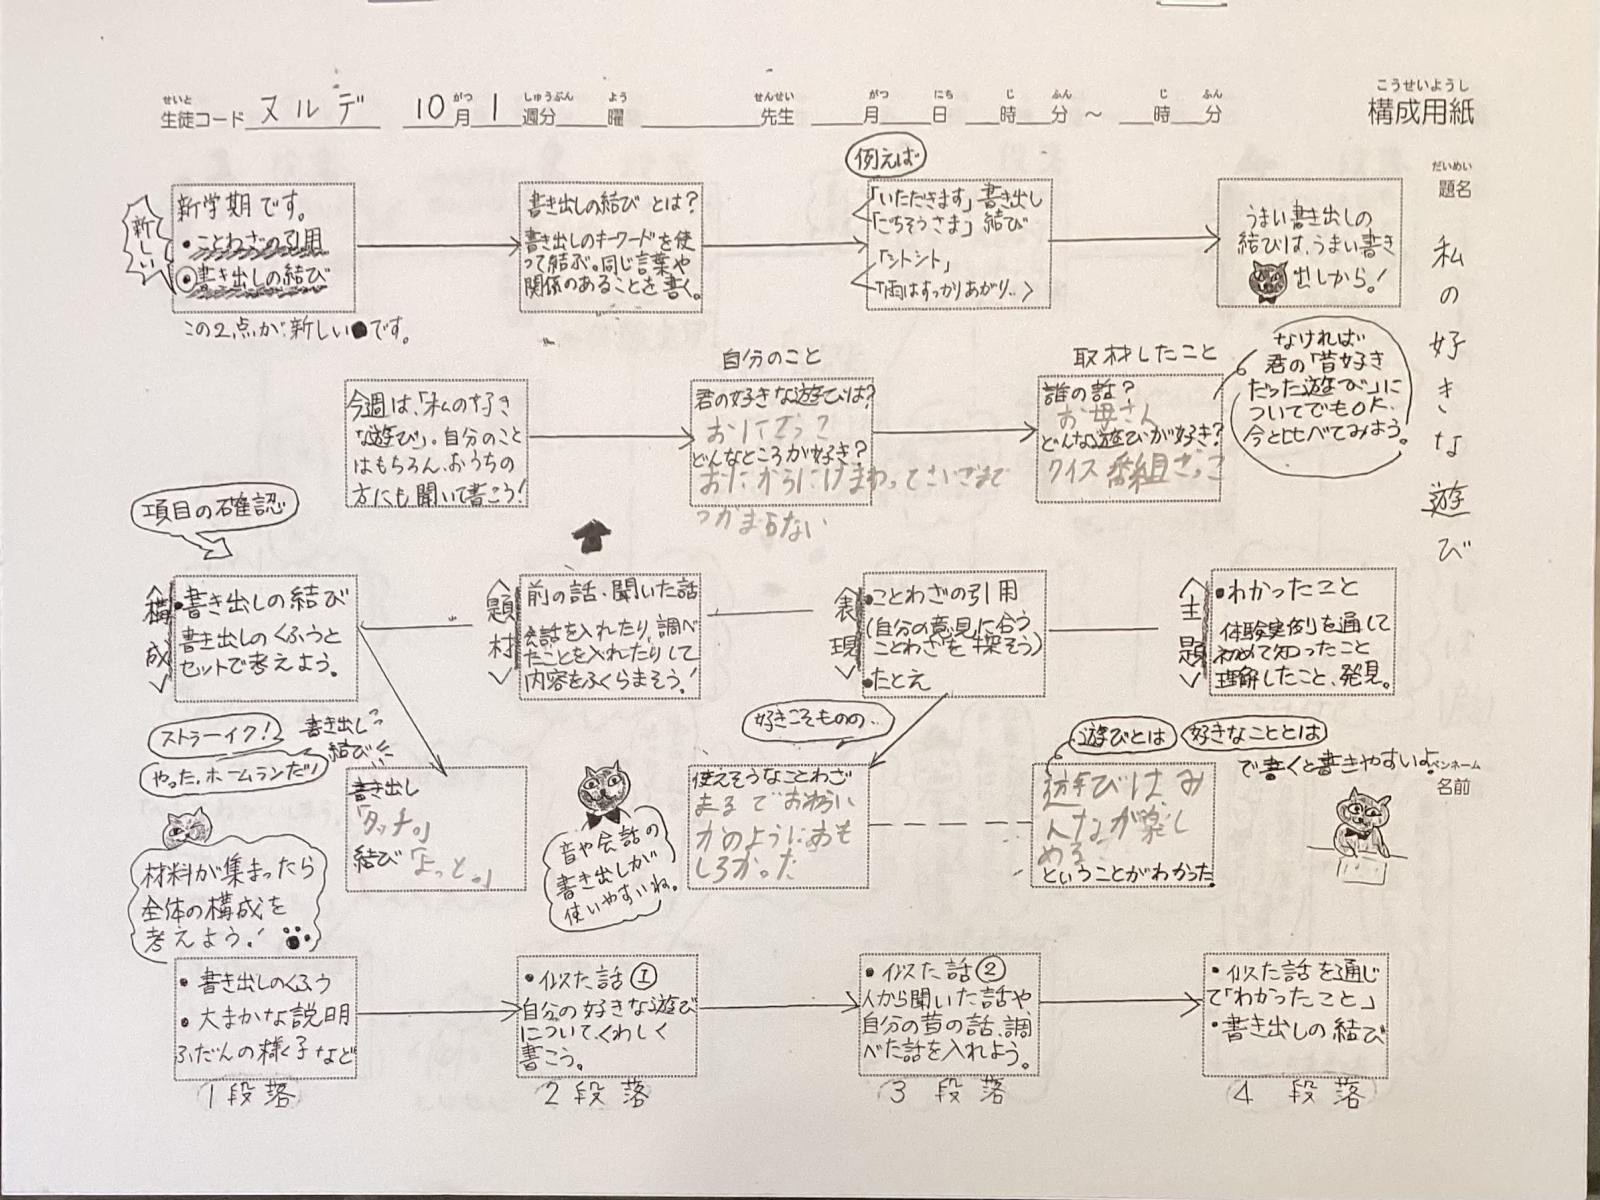 せいと がつ しゅうぶん よう せんせい がつ にち じ ふん じ ふん
生徒コード ヌルデ 10月1週分 曜 先生 月 日 時 分 ～ 時 分
こうせいようし
構成用紙
だいめい
題名
私の好きな遊び
新しい
新学期です。
・ことわざの引用
・書き出しの結び
この2点が新しい●です。
書き出しの結びとは?
書き出しのキーワードを使
って結ぶ。同じ言葉や
関係のあることを書く。
例えば
「いただきます」書き出し
「ごちそうさま」結び
「シトシト」
「雨はすっかりあがり..」
うまい書き出しの
結びは、うまい書き
出しから!
今週は、「私の好き
な遊び」。自分のこと
はもちろん、おうちの
方にも聞いて書こう!
自分のこと
君の好きな遊びは?
おにごっこ
どんなところが好き?
おにからにげまわってさいごまで
つかまらない
取材したこと
誰の話?
お母さん
どんな遊びが好き?
クイズ番組ごっこ
なければ
君の「昔好き
だった遊び」に
ついてでもOK、
今と比べてみよう。
項目の確認
構成
・書き出しの結び
書き出しのくふうと
セットで考えよう。
題材
前の話、聞いた話
会話を入れたり、調べ
たことを入れたりして
内容をふくらまそう!
表現
・ことわざの引用
(自分の意見に合う
ことわざを探そう)
・たとえ
主題
・わかったこと
体験実例を通して
初めて知ったこと
理解したこと、発見。
ストラーイク!
やった、ホームランだ!
書き出し
結び
書き出し
「タッチ。」
結び
音や会話の
書き出しが
使いやすいね。
好きこそものの..
使えそうなことわざ
まるでお笑い
かのようにおも
しろかった
遊びとは
好きなこととは
で書くと書きやすいよ。
遊びはみ
んなが楽し
める
ということがわかった。
ペンネーム
名前
材料が集まったら
全体の構成を
考えよう!
・書き出しのくふう
・大まかな説明
ふだんの様子など
1段落
・似た話①
自分の好きな遊び
について、くわしく
書こう。
2段落
・似た話②
人から聞いた話や、
自分の昔の話、調
べた話を入れよう。
3段落
・似た話を通じ
て「わかったこと」
・書き出しの結び
4段落